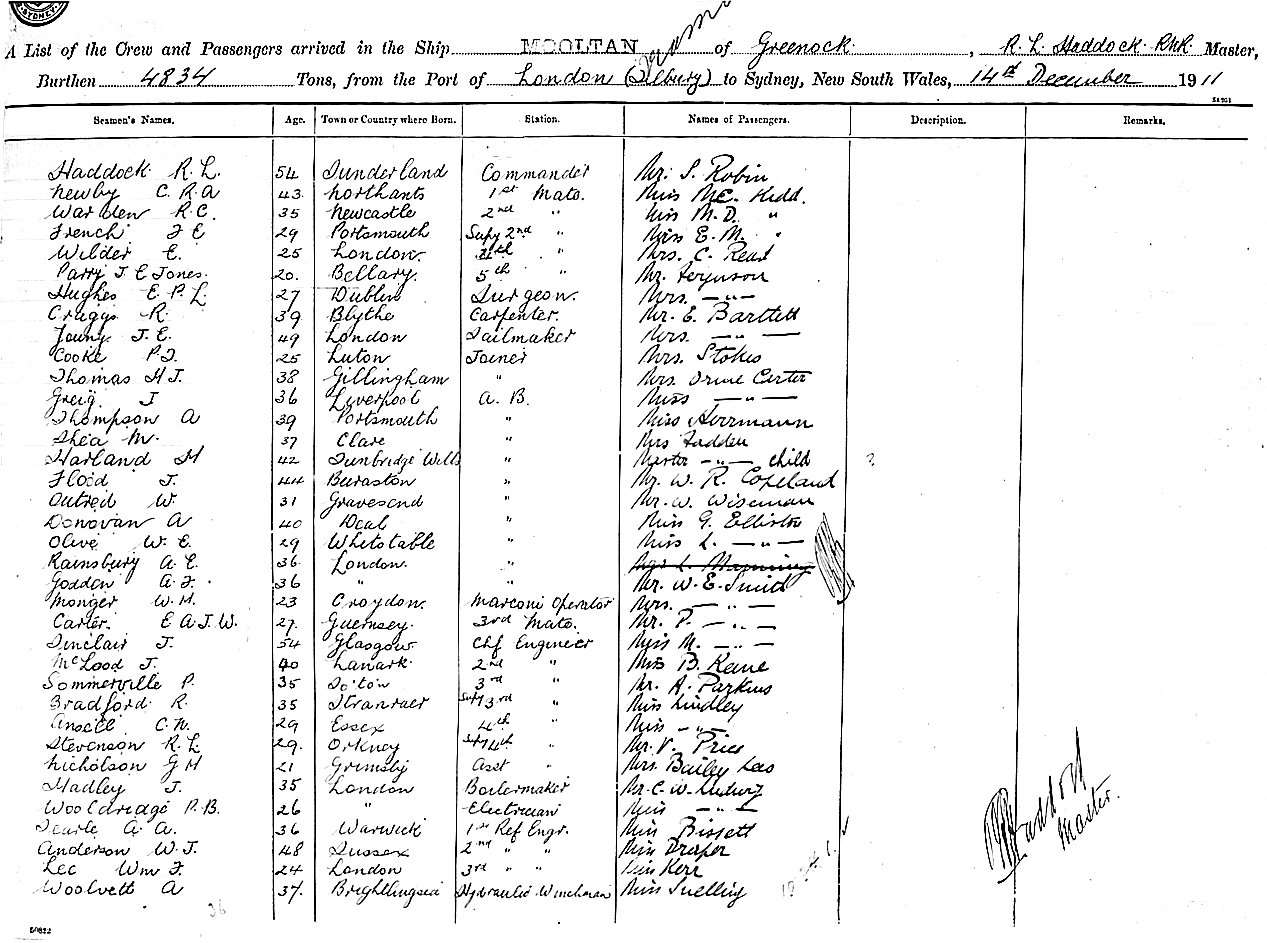 SYDNEY
A List of the Crew and Passengers arrived in the Ship MOOLTAN from of Greenock, R. L. Haddock RNR Master,
Burthen 4834 Tons, from the Port of London (Tilbury) to Sydney, New South Wales, 14th December 1911
Seamen's Names. Age. Town or Country where Born. Station. Names of Passengers. Description. Remarks.
Haddock R. L. 54 Sunderland Commander Mr. S. Robin
Newby C. R. A 43 Northants 1st Mate. Miss Kidd
Warden R. C. 35 Newcastle 2nd " Miss M. D. "
French F E 29 Portsmouth Supy 2nd " Miss E. M. "
Wilder E. 25 London 4th " Mrs. C. Read
Parry J. E Jones. 20. Bellary. 5th " Mr. Ferguson
Hughes E. P. L. 27 Dublin Surgeon. Mrs. — " —
Craggs R. 39 Blythe Carpenter. Mr. E. Bartlett
Young J. E. 49 London Sailmaker Mrs. — " —
Cooke P. J. 25 Luton Joiner Mrs. Stokes
Thomas H J. 38 Gillingham " Mrs. Orme Carter
Greig J 36 Liverpool A. B. Miss — " —
Thompson A 39 Portsmouth " Miss Herrmann
Shea M. 37 Clare " Mrs Fadden
Harland H 42 Tunbridge Wells " Master — " — child ?
Flood J. 44 " Mr. W. R. Copeland
W. 31 Gravesend " Mr. W. Wiseman
Donovan A 40 Deal " Miss G. Elliston
Olive W. E. 29 Whitstable " Miss L. — " —
Rainsbury A. E. 36 London. " Manning
Godden A. F. 36 " " Mr. W. E. Smith
Monger W. H. 23 Croydon. Marconi Operator Mrs. — " —
Carter. E A J. W. 27. Guernsey. 3rd Mate. Mr. P. — " —
Sinclair J. 54 Glasgow Chf Engineer Miss M. — " —
McLeod J. 40 Lanark. 2nd " Miss B. Keane
Sommerville P. 35 So'ton 3rd " Mr. A. Parkins
Bradford R. 35 Stranraer Supy 3rd " Miss Lindley
Ansell C. N. 29 Essex 4th " Miss — " —
Stevenson R. L. 29. Orkney Supy 4th " Mr. V. Price
Nicholson G H 21 Grimsby Asst " Mrs. Bailey Lees
Hadley J. 35 London Boilermaker Mr. C. W. Ludwig
Wooldridge P. B. 26 " Electrician Miss — " —
Searle A. A. 36 Warwick 1st Ref Engr. Miss Bissett
Anderson W. J. 48 Sussex 2nd " " Miss Draper
Lee Wm F. 24 London 3rd " " Miss Kerr
Woolvett A 37. Brightlingsea Hydraulic Winchman Miss Snelling
Haddock
Master.
36